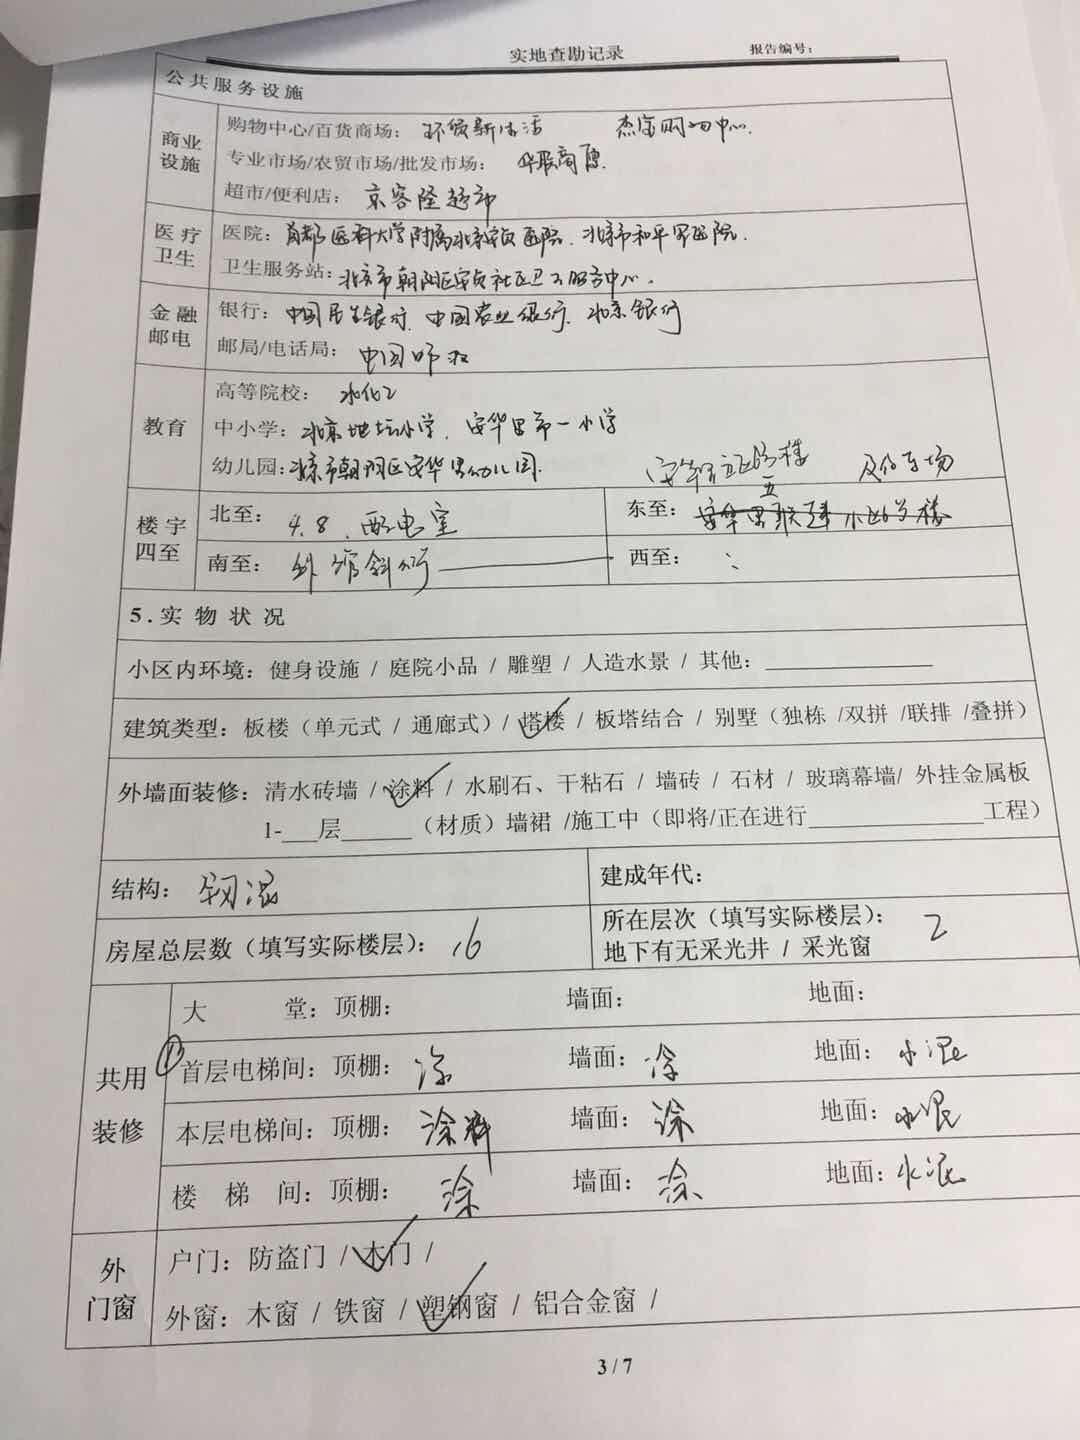 实地查勘记录 报告编号：
公共服务设施
商业设施
购物中心/百货商场： 环度新生活 杰宝购物中心.
专业市场/农贸市场/批发市场： 华联商厦.
超市/便利店： 京客隆超市
医疗卫生
医院：首都医科大学附属北京安贞医院．北京市和平里医院．
卫生服务站：北京市朝阳区安贞社区卫生服务中心．
金融邮电
银行： 中国民生银行．中国农业银行．北京银行
邮局/电话局： 中国邮政
教育
高等院校：
中小学：北京地坛小学．安华里第一小学
幼儿园：北京市朝阳区安华里幼儿园．
楼宇四至
北至： 4.8．配电室
东至： 小区6号楼 及停车场
南至： 外馆斜街
西至： ：
5.实物状况
小区内环境：健身设施 / 庭院小品 / 雕塑 / 人造水景 / 其他：
建筑类型：板楼（单元式 / 通廊式）/ 塔楼 / 板塔结合 / 别墅（独栋 /双拼 /联排 /叠拼）
外墙面装修：清水砖墙 / 涂料 / 水刷石、干粘石 / 墙砖 / 石材 / 玻璃幕墙/ 外挂金属板
1-___层______（材质）墙裙 /施工中（即将/正在进行______________工程）
结构： 钢混 建成年代：
房屋总层数（填写实际楼层）： 16 所在层次（填写实际楼层）： 2
地下有无采光井 / 采光窗
共用装修
大 堂：顶棚： 墙面： 地面：
①首层电梯间：顶棚： 涂 墙面： 涂 地面： 水泥
本层电梯间：顶棚： 涂料 墙面： 涂 地面：水泥
楼 梯 间：顶棚： 涂 墙面： 涂 地面：水泥
外门窗
户门：防盗门 / 木门 /
外窗：木窗 / 铁窗 / 塑钢窗 / 铝合金窗 /
3 / 7